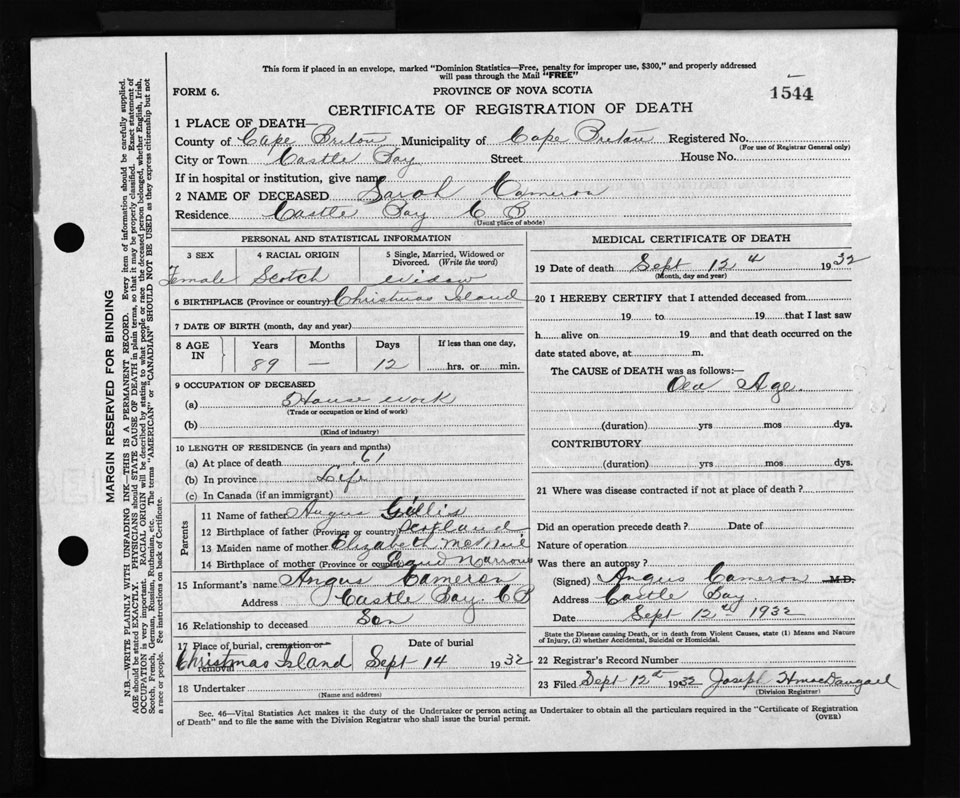 This form if placed in an envelope, marked "Dominion Statistics—Free, penalty for improper use, $300," and properly addressed
will pass through the Mail "FREE"
FORM 6.
PROVINCE OF NOVA SCOTIA
1544
CERTIFICATE OF REGISTRATION OF DEATH
1 PLACE OF DEATH—
County of Cape Breton Municipality of Cape Breton Registered No.
(For use of Registrar General only)
City or Town Castle Bay Street House No.
If in hospital or institution, give name
2 NAME OF DECEASED Sarah Cameron
Residence Castle Bay C B
(Usual place of abode)
PERSONAL AND STATISTICAL INFORMATION
3 SEX 4 RACIAL ORIGIN 5 Single, Married, Widowed or Divorced. (Write the word)
Female Scotch Widow
6 BIRTHPLACE (Province or country) Christmas Island
7 DATE OF BIRTH (month, day and year)
8 AGE IN Years Months Days If less than one day,
89 — 12 hrs. or min.
9 OCCUPATION OF DECEASED
(a) House work
(Trade or occupation or kind of work)
(b)
(Kind of industry)
10 LENGTH OF RESIDENCE (in years and months)
(a) At place of death 61
(b) In province Life
(c) In Canada (if an immigrant)
Parents
11 Name of father Angus Gillis
12 Birthplace of father (Province or country) Scotland
13 Maiden name of mother Elizabeth McNeil
14 Birthplace of mother (Province or country) Narrows
15 Informant's name Angus Cameron
Address Castle Bay. C B
16 Relationship to deceased Son
17 Place of burial, cremation or removal Date of burial
Christmas Island Sept 14 1932
18 Undertaker
(Name and address)
MEDICAL CERTIFICATE OF DEATH
19 Date of death Sept 12th 1932
(Month, day and year)
20 I HEREBY CERTIFY that I attended deceased from
19 to 19 that I last saw
h alive on 19 and that death occurred on the
date stated above, at m.
The CAUSE of DEATH was as follows:—
Old Age.
(duration) yrs mos dys.
CONTRIBUTORY
(duration) yrs mos dys.
21 Where was disease contracted if not at place of death?
Did an operation precede death? Date of
Nature of operation
Was there an autopsy?
(Signed) Angus Cameron M.D.
Address Castle Bay.
Date Sept 12th 1932
State the Disease causing Death, or in death from Violent Causes, state (1) Means and Nature
of Injury, (2) whether Accidental, Suicidal or Homicidal.
22 Registrar's Record Number
23 Filed Sept 12th 1932 Joseph H MacDougall
(Division Registrar)
Sec. 46—Vital Statistics Act makes it the duty of the Undertaker or person acting as Undertaker to obtain all the particulars required in the "Certificate of Registration
of Death" and to file the same with the Division Registrar who shall issue the burial permit.
(OVER)
MARGIN RESERVED FOR BINDING
N.B.—WRITE PLAINLY WITH UNFADING INK—THIS IS A PERMANENT RECORD. Every item of information should be carefully supplied.
AGE should be stated EXACTLY. PHYSICIANS should STATE CAUSE OF DEATH in plain terms, so that it may be properly classified. Exact statement of
OCCUPATION is very important. RACIAL ORIGIN will be described by stating to what people or race the deceased person belonged, whether English, Irish,
Scotch, French, German, Russian, Ruthenian, etc. The terms "AMERICAN" or "CANADIAN" SHOULD NOT BE USED as they express citizenship but not
a race or people. Fee instructions on back of Certificate.